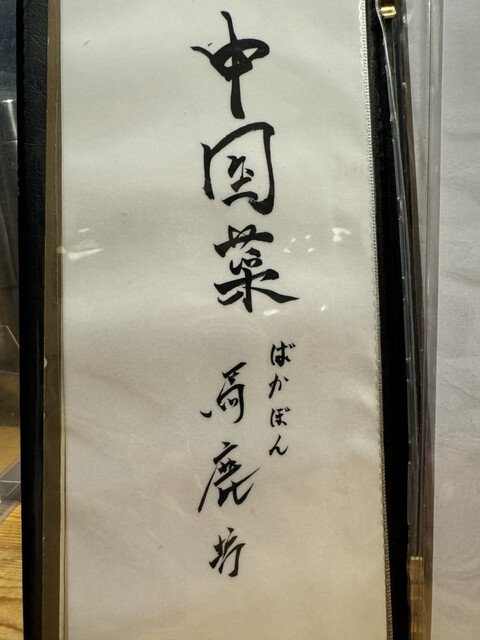 中国菜
馬鹿坊
ばかぼん